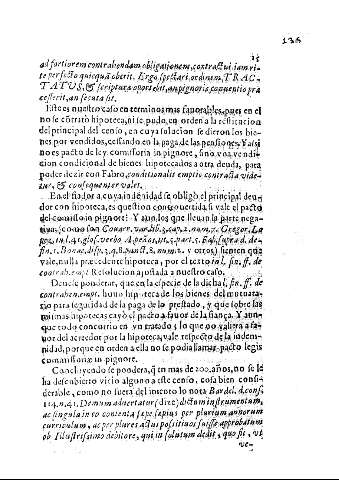 136
25
ad fortiorem contrahendam obligationem, contractui iam ri-
te perfecto quicquã oberit. Ergo spectari, ordinem, TRAC-
TATUS, & scriptura oportebit, an pignoris, conuentio præ
cesserit, an secuta sit.
Este es nuestro caso en terminos mas fauorables, pues en el
no se cõtratò hipoteca, ni se pudo, en orden a la restitucion
del principal del censo, en cuya solucion se dieron los bie-
nes por vendidos, cessando en la paga de las pensiones. Y assi
no es pacto de ley comissoria in pignore, sino vna vendi-
cion condicional de bienes hipotecados a otra deuda, para
poder dezir con Fabro, conditionalis emptio contracta vide-
tur, & consequenter valet.
En el fiador, a cuya indemnidad se obligò el principal deu-
dor con hipoteca, es question controuertida, si vale el pacto
del comisso in pignore? Y aun los que lleuan la parte nega-
tiua, (como son Couarr. var. lib. 3. cap. 2. num. 7. Gregor. Lo
pez, in l. 41. glos. verbo A peños, tit. 5. part. 5. Fab. supra d. de-
fin. 1. Bonac. disp. 3. q. 8. punct. 8. num. 2. y otros) sienten que
vale, nulla præcedente hipotheca: por el texto in l. fin. ff. de
contrah. empt. Resolucion ajustada a nuestro caso.
Deuese ponderar, que en la especie de la dicha l. fin. ff. de
contrahen. empt. huuo hipoteca de los bienes del mutuata-
rio para seguridad de la paga de lo prestado, y que sobre las
mismas hipotecas cayò el pacto a fauor de la fiança. Y aun-
que todo concurriò en vn tratado, lo que no valiera a fa-
uor del acreedor por la hipoteca, vale respecto de la indem-
nidad, porque en orden a ella no se podia llamar pacto legis
commissoriæ in pignore.
Concluyendo se pondera, q̃ en mas de 200. años, no se le
ha descubierto vicio alguno a este censo, cosa bien consi-
derable, como no fuera del inscoto lo nota Bardel. d. cons.
114. n. 41. Demum aduertatur (dize) dictum instrumentum,
ac singula in eo contenta sæpe sæpius per plurium annorum
curriculum, ac per plures actus possitiuos fuisse approbatum
ob Illustrissimo debitore, qui in solutum dedit, quo sit, vt
ve-